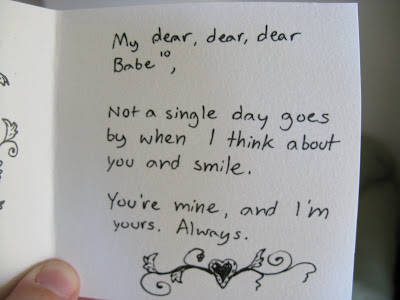 My dear, dear, dear
Babe¹⁰,
Not a single day goes
by when I think about
you and smile.
You're mine, and I'm
yours. Always.